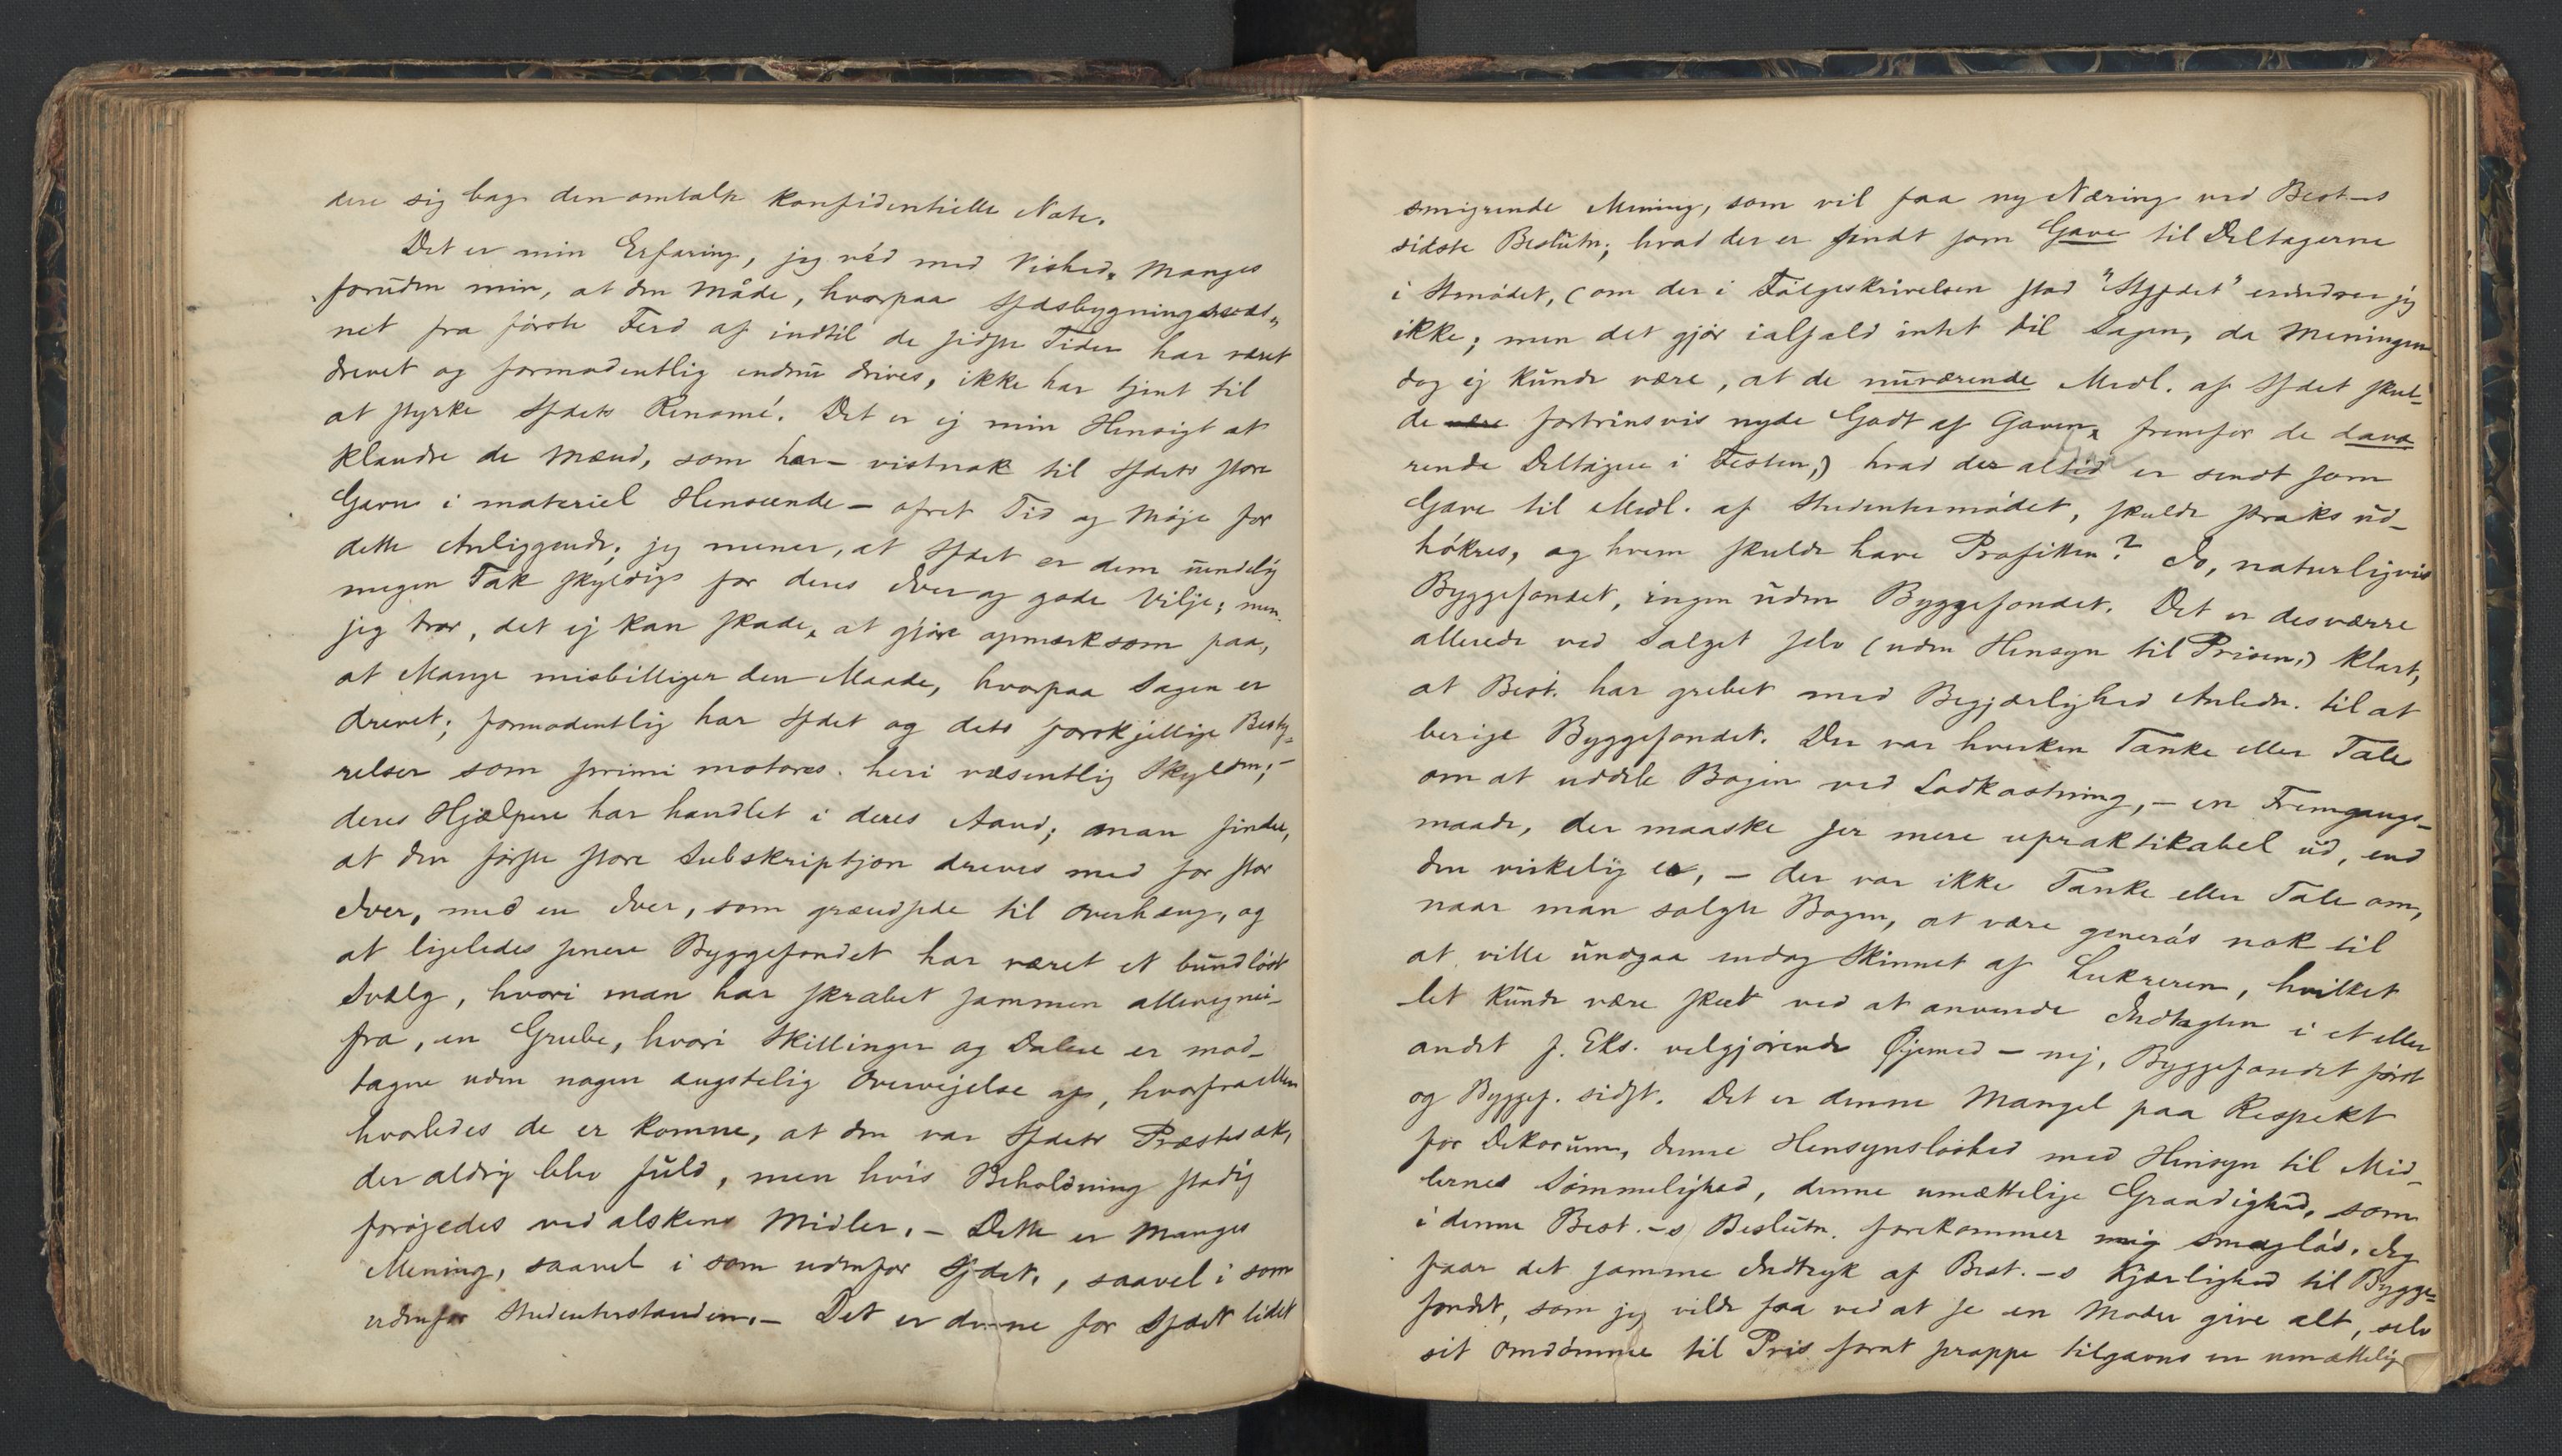 dere sig bag den omtalte konfidentielle Note.
Det er min Erfaring, jeg véd med Vished, Manges
foruden min, at den Måde, hvorpaa Sfdsbygningsvæs-
net fra første Færd af indtil de sidste Tider har været
drevet og formodentlig endnu drives, ikke har tjent til
at styrke Sfdets Renomé. Det er ej min Hensigt at
klandre de Mænd, som har – vistnok til Sfdets store
Gavn i materiel Henseende – ofret Tid og Møje for
dette Anliggende; jeg mener, at Sfdet er dem uendelig
megen Tak skyldig for deres Iver og gode Vilje; men
jeg tror, det ej kan skade, at gjøre opmærksom paa,
at Mange misbilliger den Maade, hvorpaa Sagen er
drevet; formodentlig har Sfdet og dets forskjellige Besty-
relser som primi motores heri væsentlig Skylden; –
deres Hjælpere har handlet i deres Aand; man finder,
at den første store Subskriptjon dreves med for stor
Iver, med en Iver, som grændsede til Overhæng, og
at ligeledes senere Byggefondet har været et bundløst
Svælg, hvori man har skrabet sammen allevegnei-
fra, en Grube, hvori Skillinger og Dalere er mod-
tagne uden nogen ængstelig Overvejelse af, hvorfra eller
hvorledes de er komne, at den var Sfdets Præstesæk,
der aldrig blev fuld, men hvis Beholdning stadig
forøjedes ved alskens Midler. – Dette er Manges
Mening, saavel i som udenfor Sfdet, saavel i som
udenfor Studenterstanden. – Det er denne for Sfdet lidet
smigrende Mening, som vil faa ny Næring ved Best-s
sidste Beslutn; hvad der er sendt som Gave til Deltagerne
i Stmødet, (om der i Følgeskrivelsen stod "Stsfdet" erindrer jeg
ikke; men det gjør ialfald intet til Sagen, da Meningen
dog ej kunde være, at de nuværende Medl. af Sfdet skul-
de fortrinsvis nyde Godt af Gaven, fremfor de davæ
rende Deltagere i Festen,) hvad der altid er sendt som
Gave til Medl. af Studentermødet, skulde straks ud-
høkres, og hvem skulde have Profitten? Jo, naturligvis
Byggefondet, ingen uden Byggefondet. Det er desværre
allerede ved Salget selv (uden Hensyn til Prisen,) klart,
at Best. har grebet med Begjærlighed Anledn. til at
berige Byggefondet. Der var hverken Tanke eller Tale
om at uddele Bogen ved Lodkastning, – en Fremgangs-
maade, der maaske ser mere upraktikabel ud, end
den virkelig er, – der var ikke Tanke eller Tale om,
naar man solgte Bogen, at være generøs nok til
at ville undgaa endog Skinnet af Lukreren, hvilket
let kunde være skeet ved at anvende Indtægten i et eller
andet f. Eks. velgjørende Øjemed – nej, Byggefondet først
og Byggef. sidst. Det er denne Mangel paa Respekt
for Dekorum, denne Hensynsløshed med Hensyn til Mid-
lernes Sømmelighed, denne umættelige Graadighed, som
i denne Best.-s Beslutn. forekommer mig smagløs. Jeg
faar det samme Indtryk af Best.-s Kjærlighed til Bygge-
fondet, som jeg vilde faa ved at se en Moder give alt, selv
sit Omdømme til Pris forat proppe tilgavns en umættelig